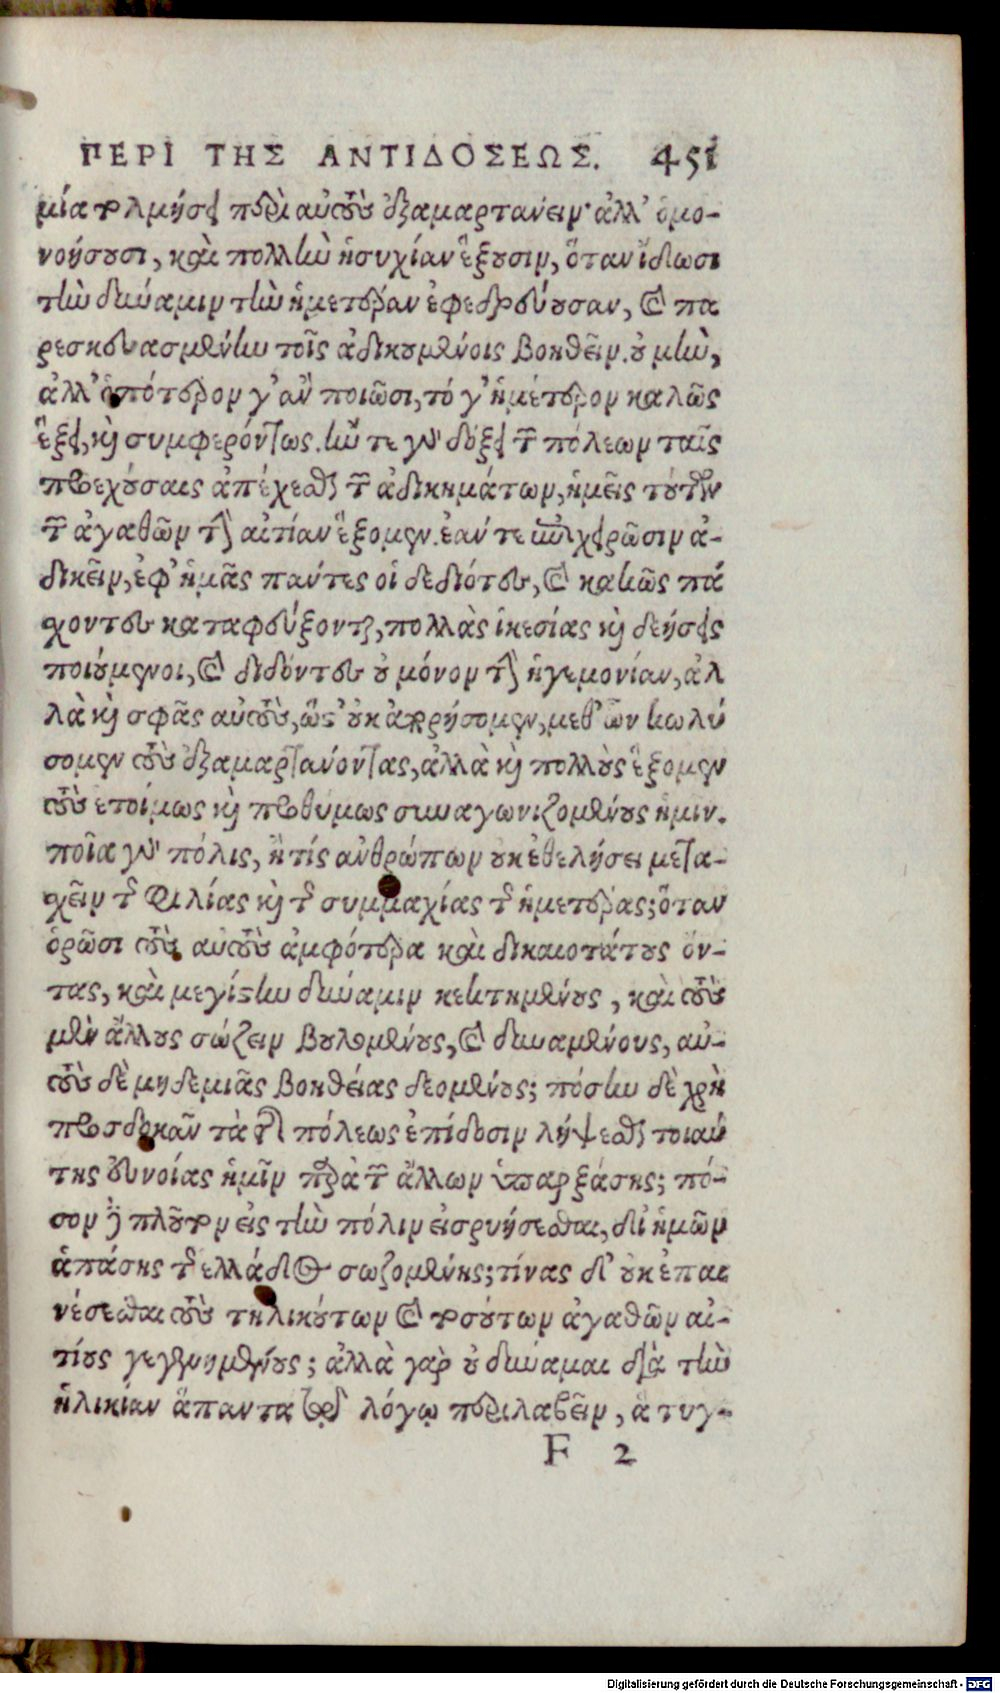 ΠΕΡΙ ΤΗΣ ΑΝΤΙΔΟΣΕΩΣ. 451
μία τολμήσει περὶ αὐτοὺς ἐξαμαρτάνειν· ἀλλ' ὁμο-
νοήσουσι, καὶ πολλὴν ἡσυχίαν ἕξουσιν, ὅταν ἴδωσι
τὴν δύναμιν τὴν ἡμετέραν ἐφεδρεύουσαν, καὶ πα
ρεσκευασμένην τοῖς ἀδικουμένοις βοηθεῖν. οὐ μὴν,
ἀλλ' ὁπότερον γ' ἂν ποιῶσι, τό γ' ἡμέτερον καλῶς
ἕξει, καὶ συμφερόντως. ἤν τε γὰρ δόξει τῶν πόλεων ταῖς
προεχούσαις ἀπέχεσθαι τῶν ἀδικημάτων, ἡμεῖς τούτων
τῶν ἀγαθῶν τὴν αἰτίαν ἕξομεν. ἐάν τε ἐπιχειρῶσιν ἀ-
δικεῖν, ἐφ' ἡμᾶς πάντες οἱ δεδιότες, καὶ κακῶς πά
σχοντες καταφεύξονται, πολλὰς ἱκεσίας καὶ δεήσεις
ποιούμενοι, καὶ διδόντες οὐ μόνον τὴν ἡγεμονίαν, ἀλ
λὰ καὶ σφᾶς αὐτοὺς, ὥστ' οὐκ ἀπορήσομεν, μεθ' ὧν κωλύ
σομεν τοὺς ἐξαμαρτανόντας, ἀλλὰ καὶ πολλοὺς ἕξομεν
τοὺς ἑτοίμως καὶ προθύμως συναγωνιζομένους ἡμῖν.
ποῖα γὰρ πόλις, ἢ τίς ἀνθρώπων οὐκ ἐθελήσει μετα-
σχεῖν τῆς φιλίας καὶ τῆς συμμαχίας τῆς ἡμετέρας; ὅταν
ὁρῶσι τοὺς αὐτοὺς ἀμφότερα καὶ δικαιοτάτους ὄν-
τας, καὶ μεγίστην δύναμιν κεκτημένους, καὶ τοὺς
μὲν ἄλλους σώζειν βουλομένους, καὶ δυναμένους, αὐ-
τοὺς δὲ μηδεμιᾶς βοηθείας δεομένους; πόσην δὲ χρὴ
προσδοκᾶν τὰ τῆς πόλεως ἐπίδοσιν λήψεσθαι τοιαύ
της εὐνοίας ἡμῖν παρὰ τῶν ἄλλων ὑπαρξάσης; πό-
σον δὲ πλοῦτον εἰς τὴν πόλιν εἰσρυήσεσθαι, δι' ἡμῶν
ἁπάσης τῆς ἑλλάδος σωζομένης; τίνας δ' οὐκ ἐπαι
νέσεσθαι τοὺς τηλικούτων καὶ τοσούτων ἀγαθῶν αἰ-
τίους γεγενημένους; ἀλλὰ γὰρ οὐ δύναμαι διὰ τὴν
ἡλικίαν ἅπαντα τῷ λόγῳ περιλαβεῖν, ἃ τυγ-
F 2
Digitalisierung gefördert durch die Deutsche Forschungsgemeinschaft - DFG